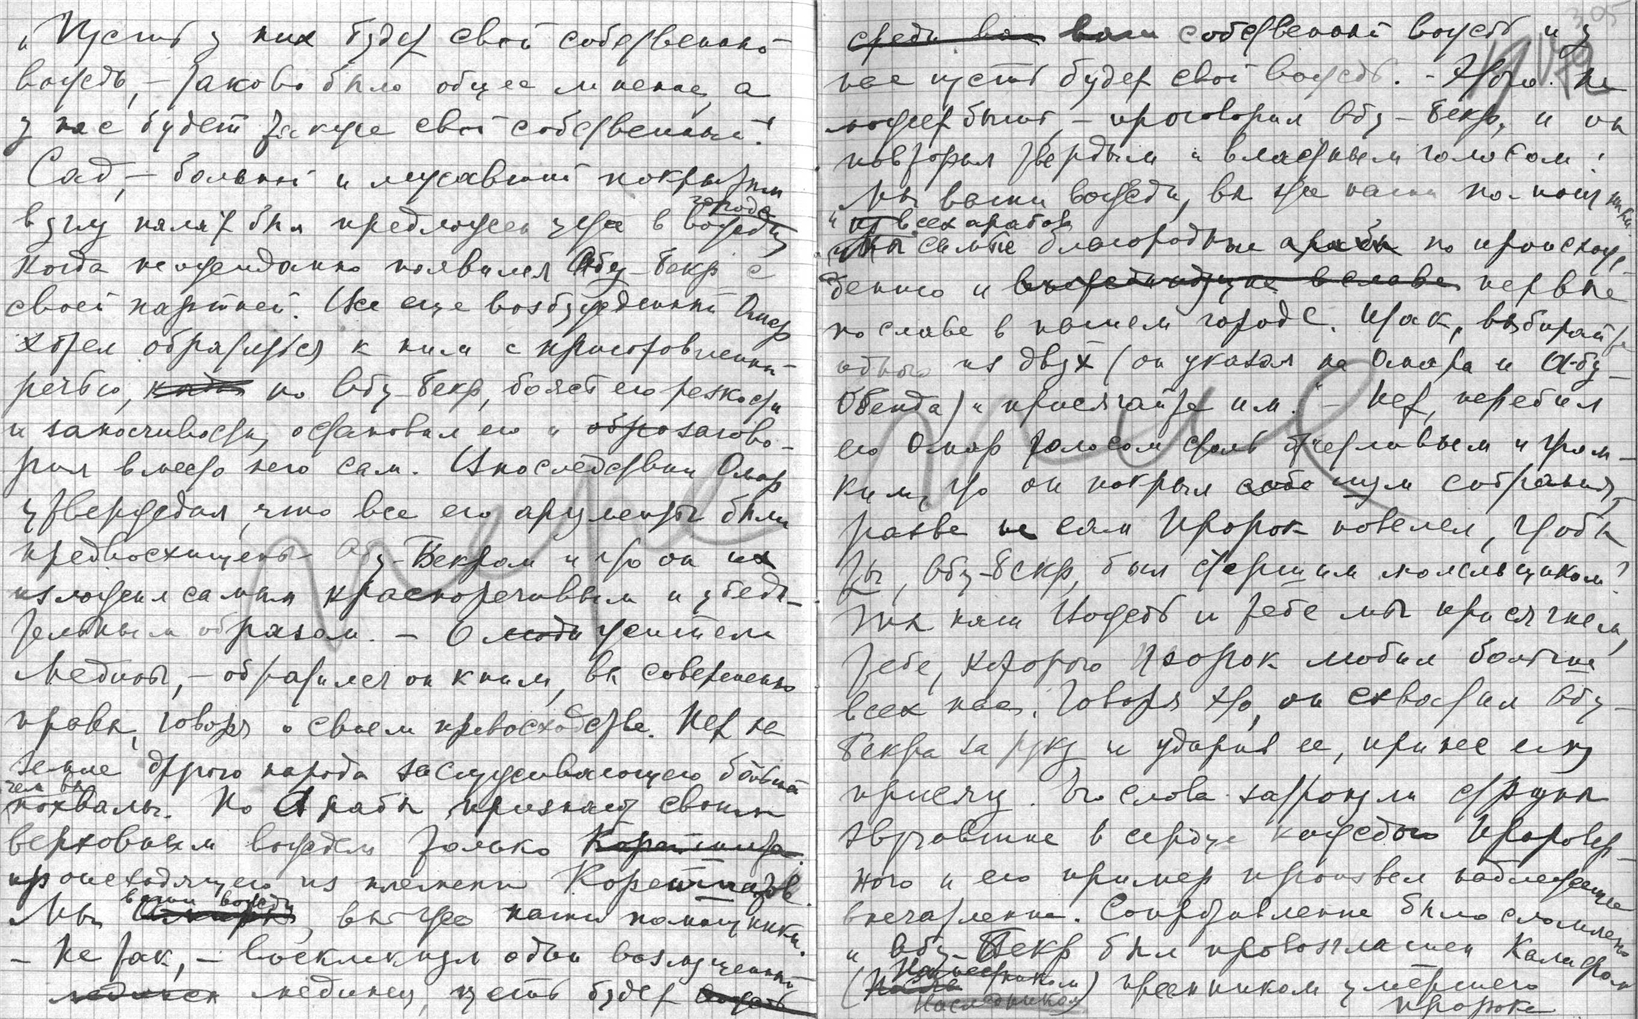 „Пусть у них будет свой собственный
вождь, – таково было общее мнение, а
у нас будет также свой собственный!"
Сад, – больной и лежавший покрытый
в углу палят был предложен уже в
города
вожди
когда неожиданно появился Абу-Бекр с
своей партией. Все еще возбужденный Омар
хотел обратиться к ним с приготовленной
речью, но Абу-Бекр, боясь его резкости
и заносчивости, остановил его и загово-
рил вместо него сам. Впоследствии Омар
утверждал, что все его аргументы были
предвосхищены Абу-Бекром и что он их
изложил самым красноречивым и убеди-
тельным образом. – О люди жители
Медины, – обратился он к ним, вы совершенно
правы, говоря о своем превосходстве. Нет на
земле другого народа заслуживающего большей
чем вы
похвалы. Но Арабы признают своим
верховным вождем только Корейшита
происходящего из племени Корейшитов.
ваши вожди
Мы , вы же наши помощники.
– Не так, – воскликнул один возмущенный
мединец, пусть будет вождь
395
среди вас ваш собственный вождь и у
нас пусть будет свой вождь. – Этого не
может быть, – проговорил Абу-Бекр, и он
повторил твердым и властным голосом:
„Мы ваши вожди, вы же наши помощники.
из всех арабов
Мы самые благородные арабы по происхож-
дению и первые
по славе в нашем городе. Итак, выбирайте
одного из двух (он указал на Омара и Абу-
Обеида) и присягайте им." – Нет, перебил
его Омар голосом столь отчетливым и гром-
ким, что он покрыл собою шум собрания,
разве не сам Пророк повелел, чтобы
ты, Абу-Бекр, был старшим молельщиком?
Ты наш Вождь и тебе мы присягнем,
тебе, которого Пророк любил больше
всех нас. Говоря это, он схватил Абу-
Бекра за руку и ударив ее, принес ему
присягу. Его слова затронули струны
звучавшие в сердце каждого Правовер-
ного и его пример произвел надлежащее
впечатление. Сопротивление было сломлено
и Абу-Бекр был провозглашен Калифом
Наместником
(наследником) преемником умершего
пророка